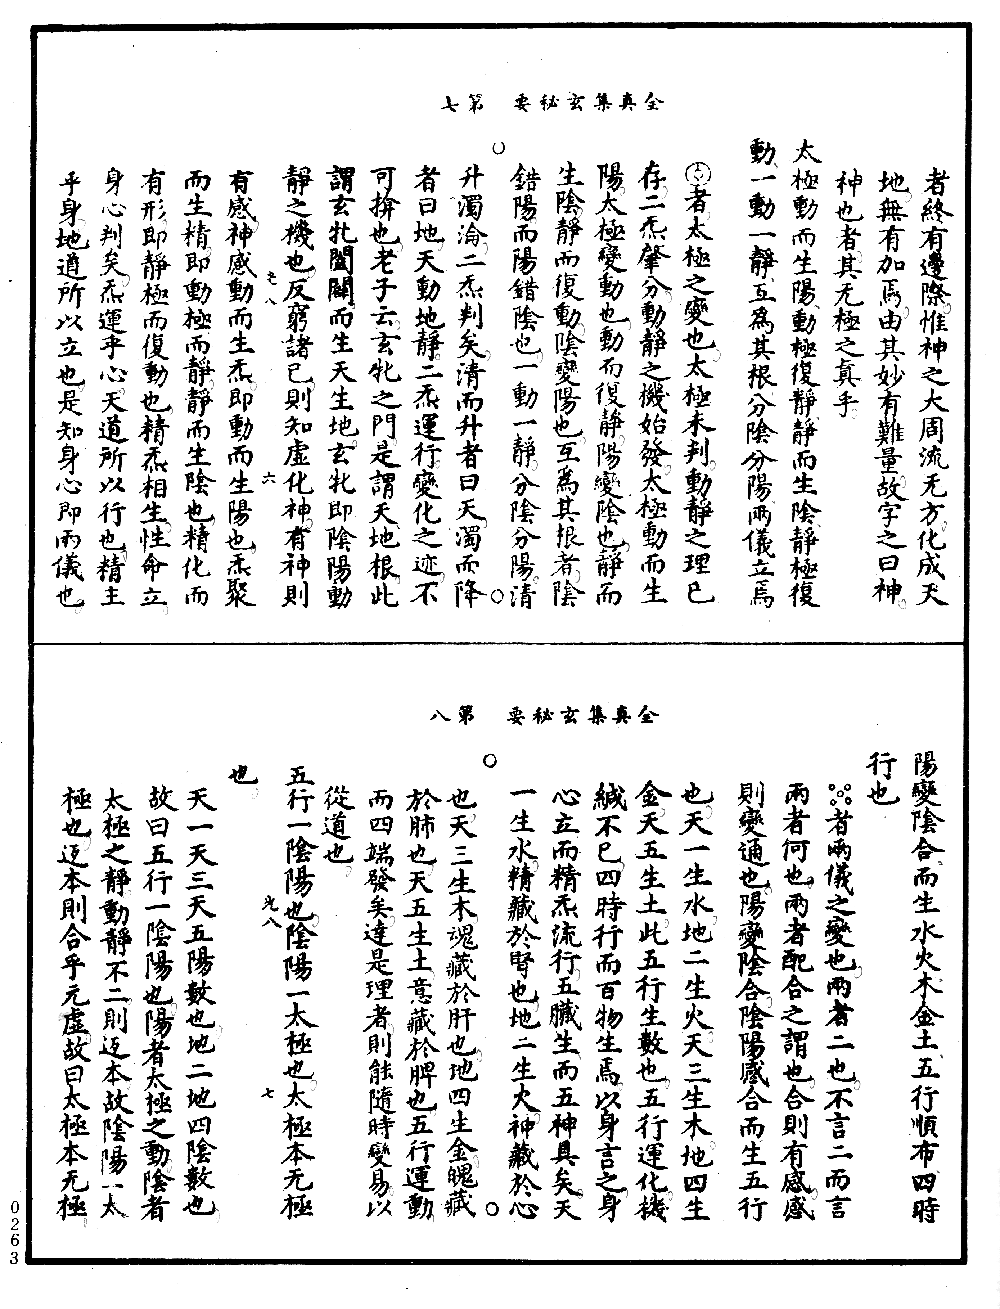 全真集玄秘要　第七
者終有邊際惟神之大周流无方化成天
地無有加焉由其妙有難量故字之曰神
神也者其无極之真乎
太極動而生陽動極復靜靜而生陰靜極復
動一動一靜互為其根分陰分陽兩儀立焉
者太極之變也太極未判動靜之理已
存二炁肇分動靜之機始發太極動而生
陽太極變動也動而復靜陽變陰也靜而
生陰靜而復動陰變陽也互為其根者陰
錯陽而陽錯陰也一動一靜分陰分陽清
升濁淪二炁判矣清而升者曰天濁而降
者曰地天動地靜二炁運行變化之迹不
可揜也老子云玄牝之門是謂天地根此
謂玄牝闔闢而生天生地玄牝即陰陽動
靜之機也反窮諸己則知虛化神有神則
光八　六
有感神感動而生炁即動而生陽也炁聚
而生精即動極而靜靜而生陰也精化而
有形即靜極而復動也精炁相生性命立
身心判矣炁運乎心天道所以行也精主
乎身地道所以立也是知身心即兩儀也
全真集玄秘要　第八
陽變陰合而生水火木金土五行順布四時
行也
者兩儀之變也兩者二也不言二而言
兩者何也兩者配合之謂也合則有感感
則變通也陽變陰合陰陽感合而生五行
也天一生水地二生火天三生木地四生
金天五生土此五行生數也五行運化機
緘不已四時行而百物生焉以身言之身
心立而精炁流行五臟生而五神具矣天
一生水精藏於腎也地二生火神藏於心
也天三生木魂藏於肝也地四生金魄藏
於肺也天五生土意藏於脾也五行運動
而四端發矣達是理者則能隨時變易以
從道也
五行一陰陽也陰陽一太極也太極本无極
光八　七
也
天一天三天五陽數也地二地四陰數也
故曰五行一陰陽也陽者太極之動陰者
太極之靜動靜不二則返本故陰陽一太
極也返本則合乎元虛故曰太極本无極
0263